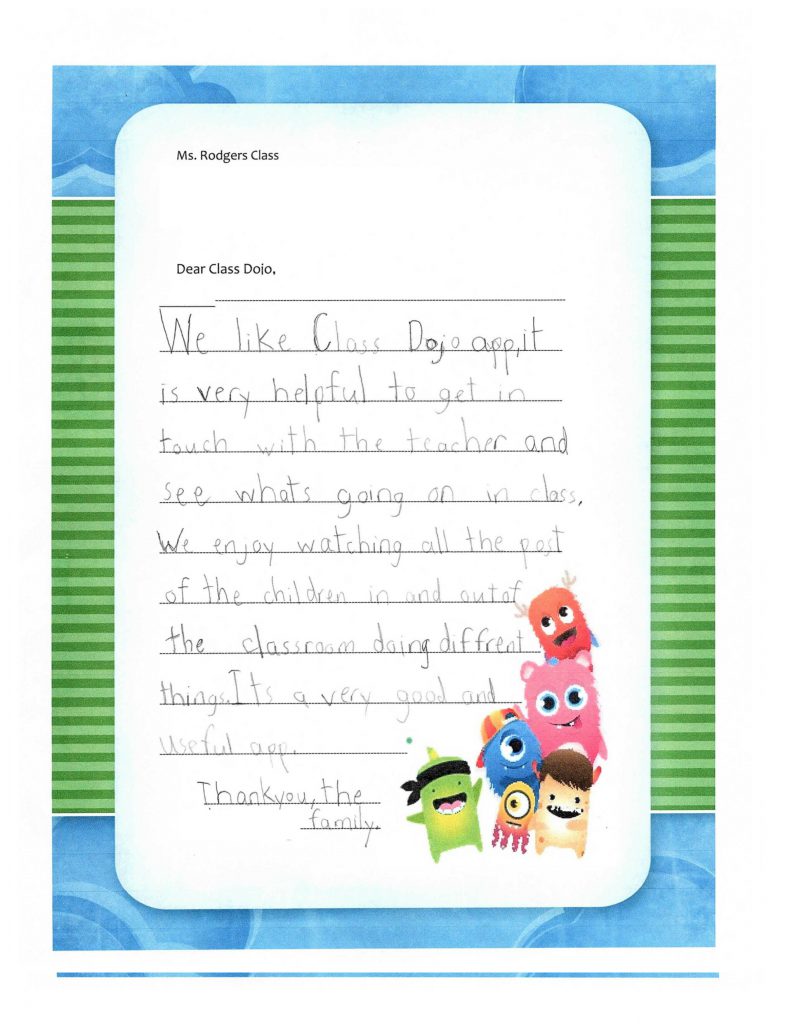 Ms. Rodgers Class
Dear Class Dojo,
We like Class Dojo app,it
is very helpful to get in
touch with the teacher and
see whats going on in class.
We enjoy watching all the post
of the children in and out of
the classroom doing diffrent
things.Its a very good and
useful app.
Thankyou, the
family.